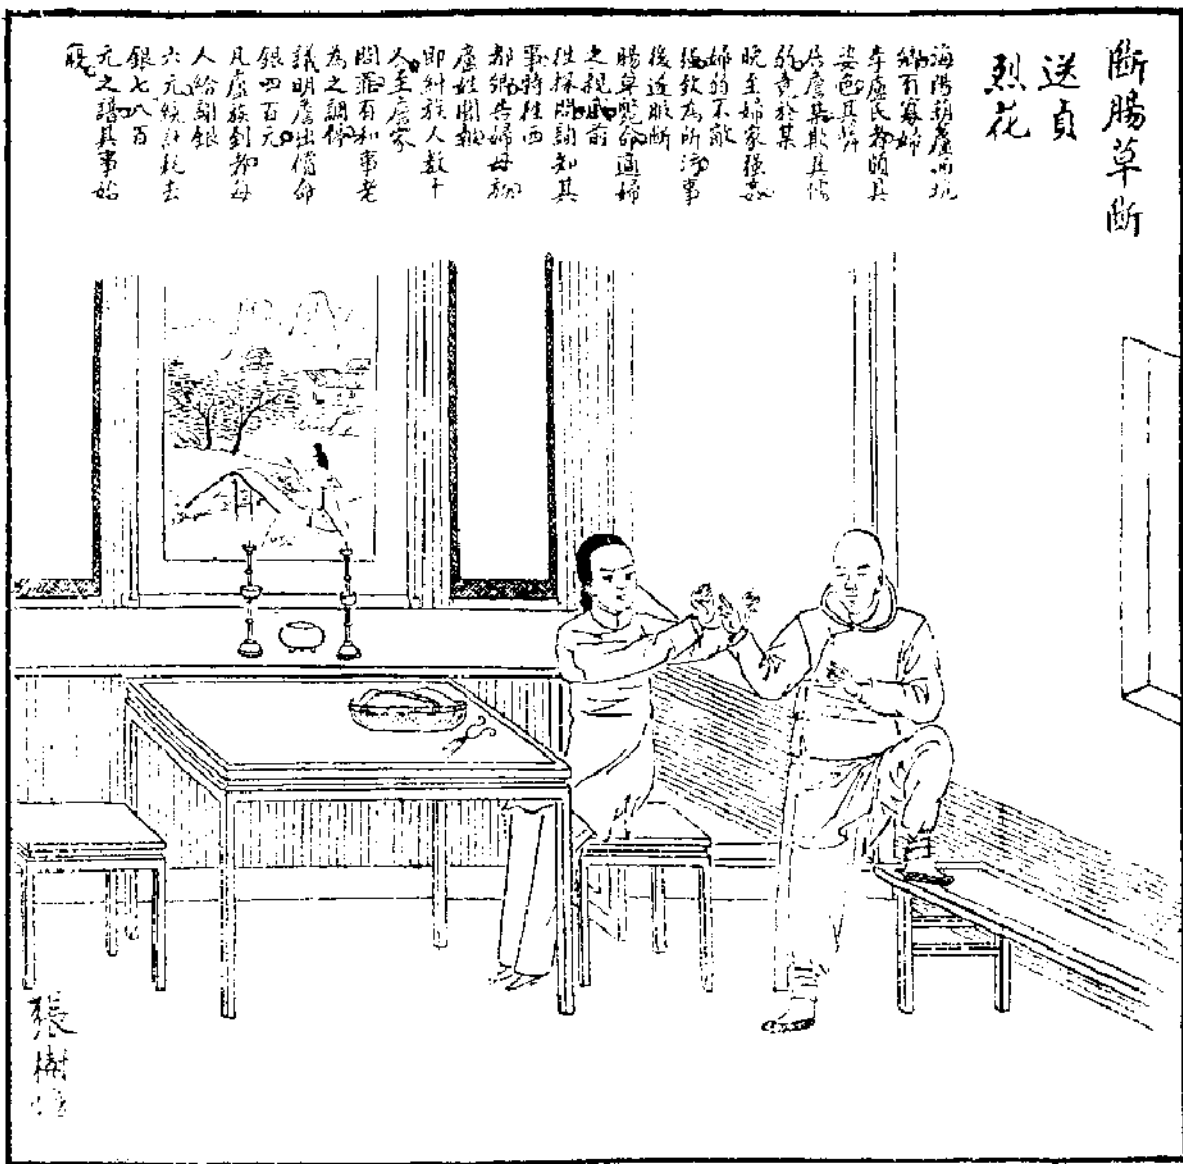 斷腸草斷
送貞
烈花
海陽鷸廬而坑
鄉有寡婦
李盧氏者頗具
姿色其鄰
居詹某欺其懦
弱竟於某
晚至婦家强姦
婦弱不敵
強致為所汚事
後遂服斷
腸草斃命適婦
之親戚前
往探問詢知其
事特往西
都鄉告婦母親
盧姓聞報
即糾族人數十
人至詹家
問罪有和事老
為之調停
議明詹出償命
銀四百元
凡盧族到者每
人給謝銀
六元統計耗去
銀七八百
元之譜其事始
寢
張樹